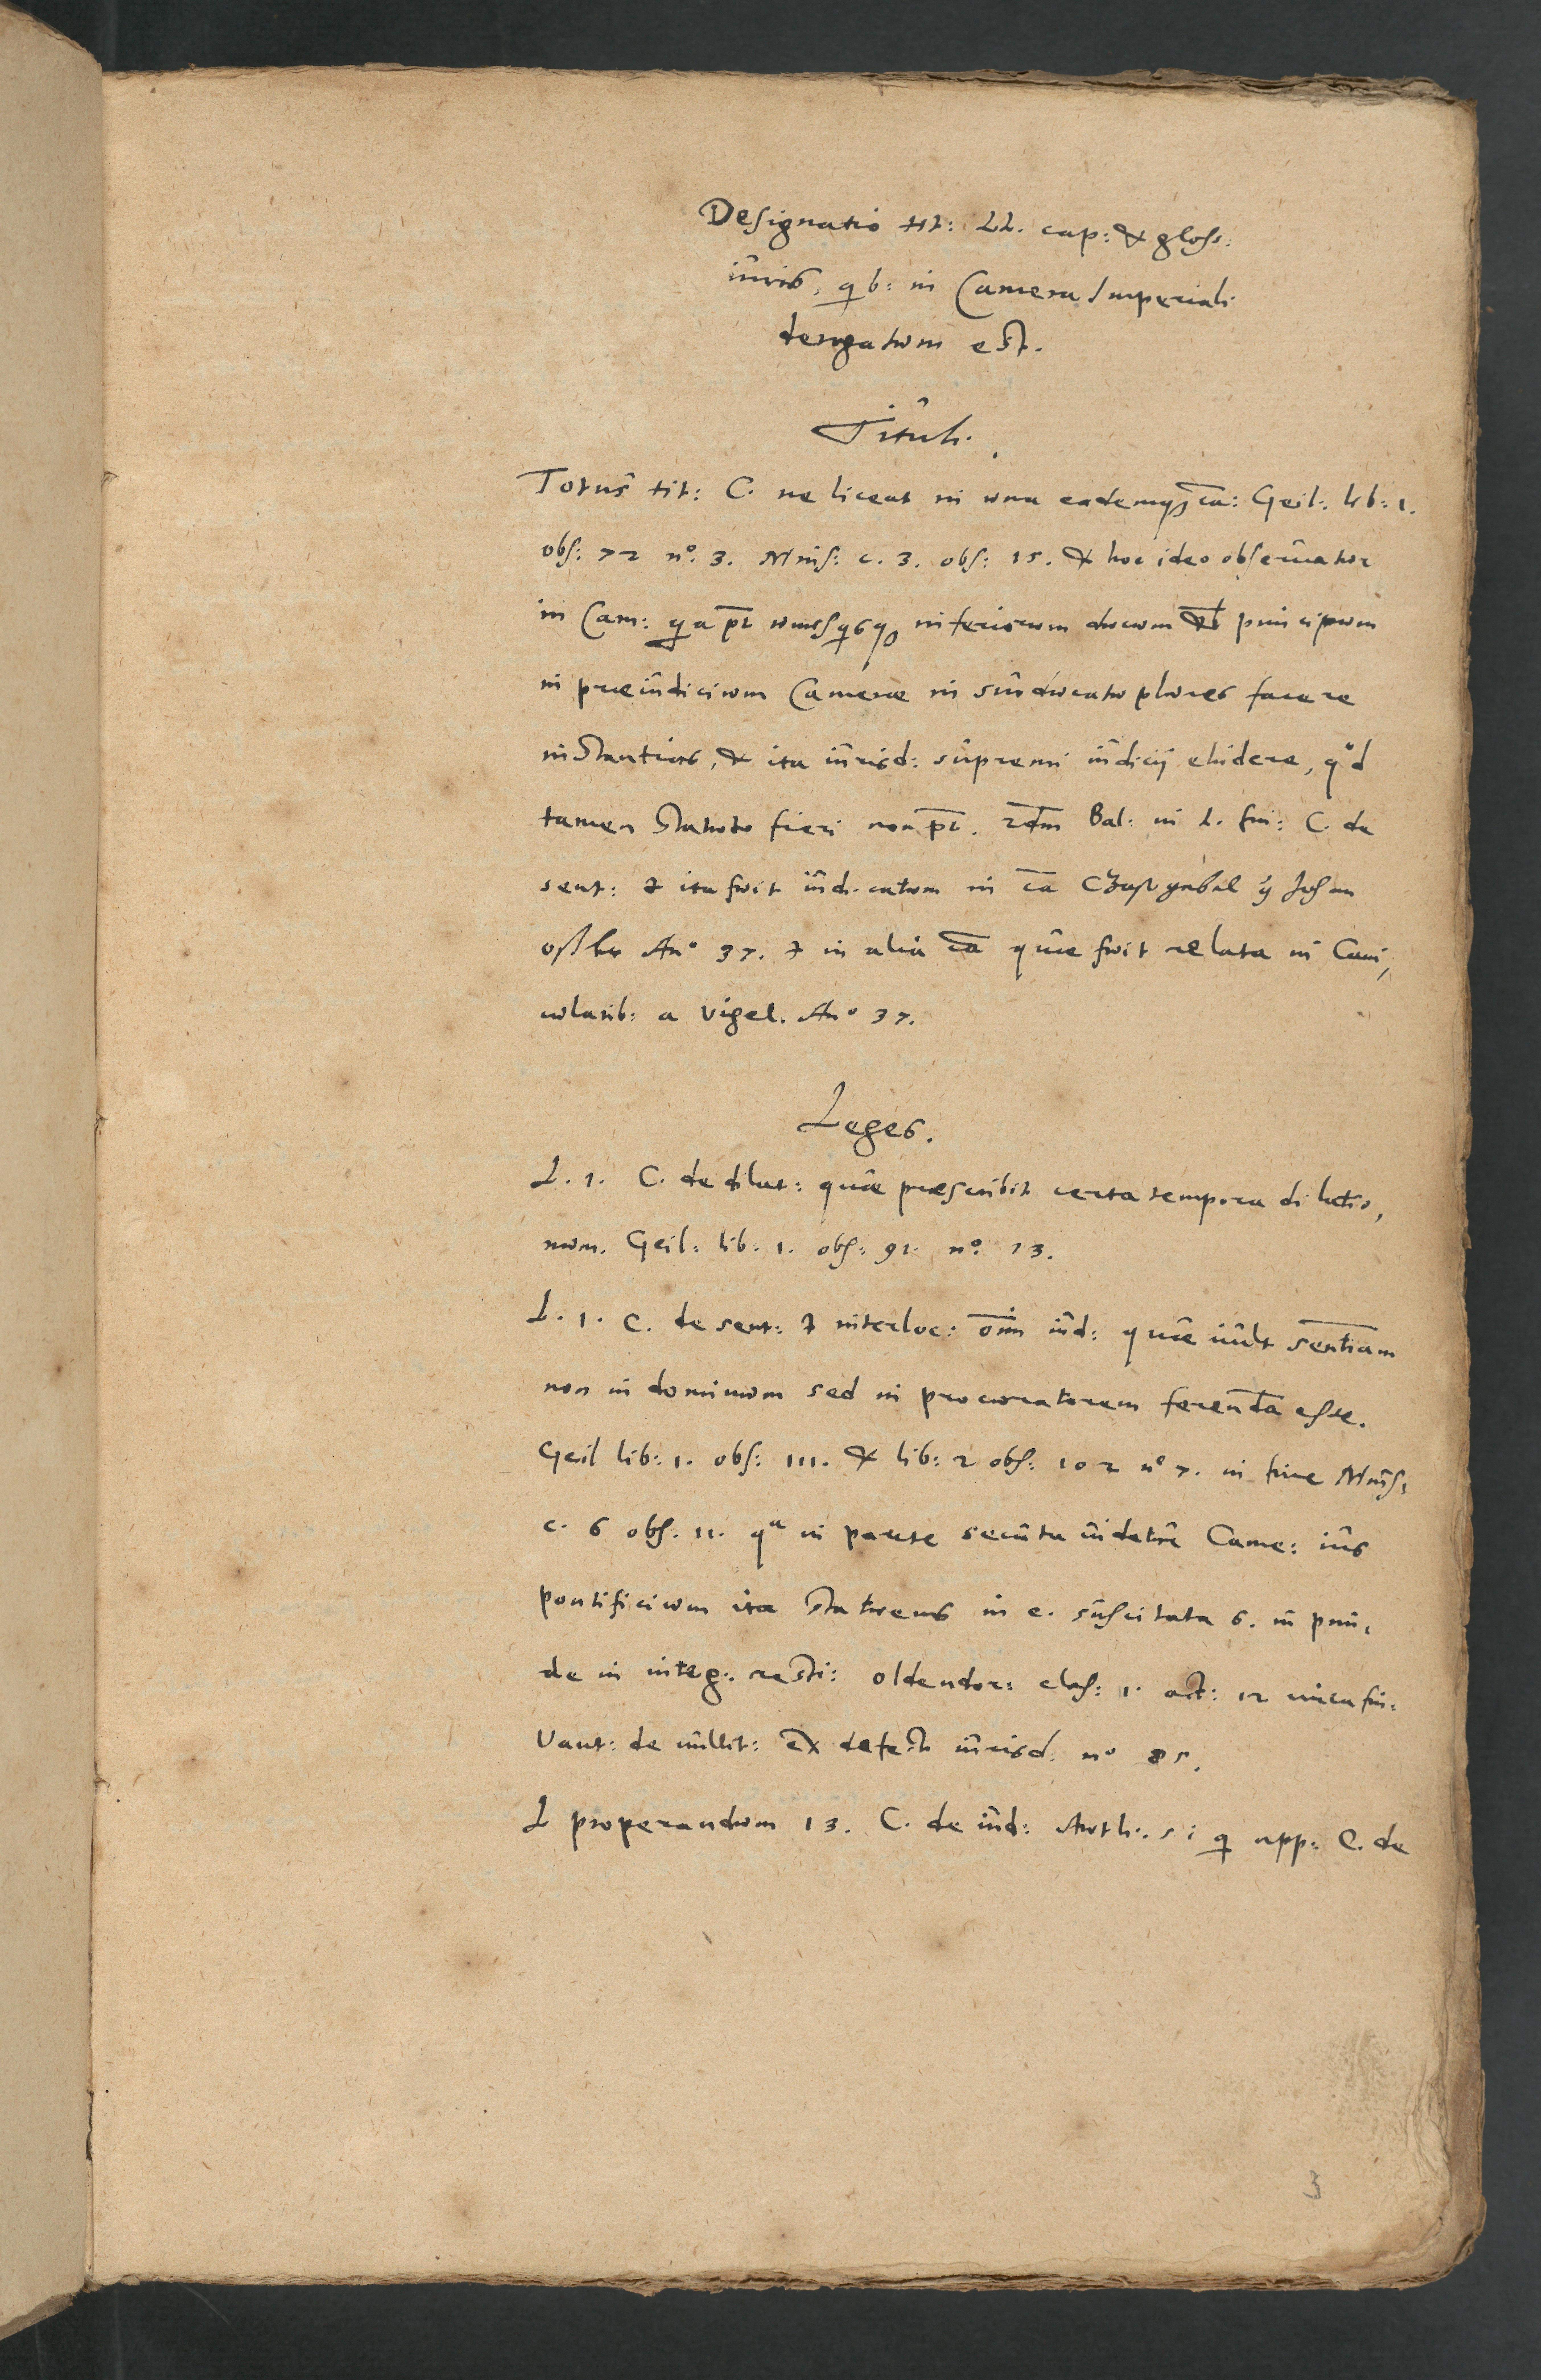 Designatio tit: LL. cap: & gloss:
iuris, qb: in Camera Imperiali
derogatum est.
Tituli.
Totus tit: C. ne liceat in una eademq; ca: Geil: lib: 1.
obs: 72 n°. 3. Mins: c. 3. obs: 15. & hoc ideo observatur
in Cam: qa pt unusqsq inferiorum ducum vel principum
in praeiudicium Camerae in suo ducatu plures facere
instantias, & ita iurisd: supremi iudicij eludere, qd
tamen statuto fieri non pt. Bal: in L. fin: C. de
sent: & ita fuit iudicatum in ca
An° 37. & in alia ca quae fuit relata in Cani,
cularib: a Vigel. An° 37.
Leges.
L. 1. C. de dilat: quae praescribit certa tempora dilatio,
num. Geil: lib: 1. obs: 91. n°. 13.
L. 1. C. de sent: & interloc: oim iud: quae vult sententiam
non in dominum sed in procuratorem ferenda esse.
Geil lib: 1. obs: 111. & lib: 2 obs: 102 n° 7. in fine Mins:
c. 6 obs. 11. qa in parte secuta videtur Came: ius
pontificium ita statuens in c. suscitata 6. in prin,
de in integ. resti: Oldendor: clas: 1. act: 12 circa fin:
Vant: de nullit: ex defectu iurisd: n° 85.
L properandum 13. C. de iud: Auth: si q app: C. de
3